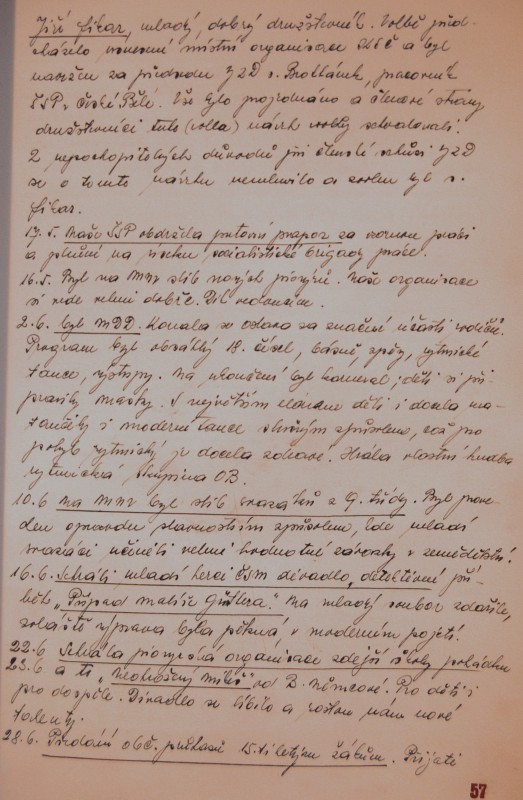 Jiří Fikar, mladý, dobrý družstevník. Volbě před-
cházelo usnesení místní organisace KSČ a byl
navržen za předsedu JZD s. Brotbánek, pracovník
ČSP v České Bělé. Vše bylo projednáno a členové strany
družstevníci tuto (volbu) návrh volby schvalovali.
Z nepochopitelných důvodů při členské schůzi JZD
se o tomto návrhu nemluvilo a zvolen byl s.
Fikar.
17. 5. Naše ČSP obdržela putovní prapor za vzornou práci
a plnění na úseku socialistické brigády práce.
16.5. Byl na MNV slib nových pionýrů. Naše organisace
si vede velmi dobře.
2.6. byl MDD. Konala se oslava za značné účasti rodičů.
Program byl obsáhlý 18. čísel, básně, zpěvy, rytmické
tance, výstupy. Na ukončení byl karneval, děti si při-
pravily masky. S největším elánem děti i docela ma-
tančily i moderní tance slušným způsobem, což pro
pohyb rytmický je docela zdravé. Hrála vlastní hudba
rytmická skupina OB.
10.6 na MNV byl slib svazáků z 9. třídy. Byl prove-
den opravdu slavnostním způsobem, kde mladí
svazáci učinili velmi hodnotné závazky v zemědělství.
16.6. Sehráli mladí herci ČSM divadlo, detektivní pří-
běh „Případ malíře Günthera". Na mladý soubor zdařilé,
zvláště výprava byla pěkná, v moderním pojetí.
22.6 Sehrála pionýrská organisace zdejší školy pohádku
23.6 a to „Neohrožený Mikeš" od B. Němcové. Pro děti i
pro dospělé. Divadlo se líbilo a rostou nám nové
talenty.
28.6. Předání obč. průkazů 15.tiletým žákům. Přijati
57